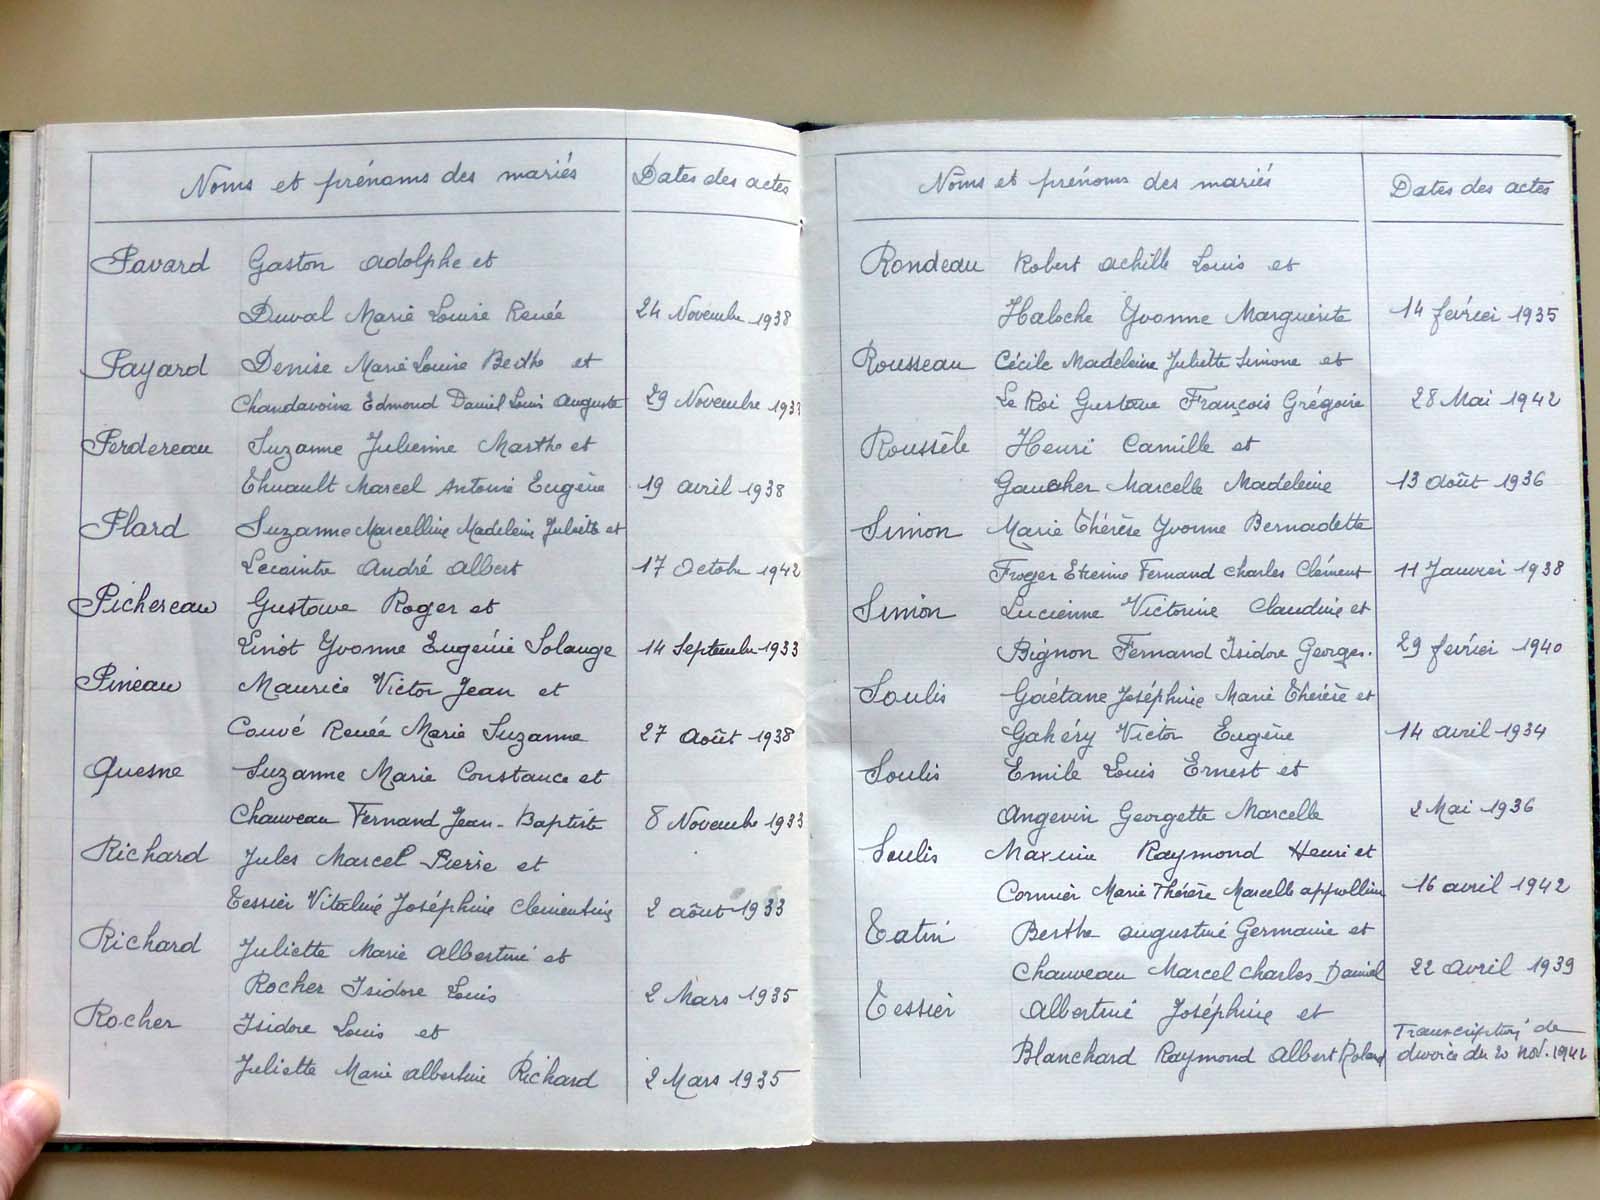 Noms et prénoms des mariés Dates des actes
Pavard Gaston Adolphe et
Duval Marie Louise Renée 24 Novembre 1938
Payard Denise Marie Louise Berthe et
Chandavoine Edmond Daniel Louis Auguste 29 Novembre 1933
Perdereau Suzanne Julienne Marthe et
Thuault Marcel Antoine Eugène 19 avril 1938
Plard Suzanne Marcelline Madeleine Juliette et
Lecointre André Albert 17 Octobre 1942
Pichereau Gustave Roger et
Linot Yvonne Eugénie Solange 14 Septembre 1933
Pineau Maurice Victor Jean et
Couvé Renée Marie Suzanne 27 Août 1938
Quesne Suzanne Marie Constance et
Chauveau Fernand Jean-Baptiste 8 Novembre 1933
Richard Jules Marcel Pierre et
Tessier Vitaline Joséphine Clementine 2 août 1933
Richard Juliette Marie Albertine et
Rocher Isidore Louis 2 Mars 1935
Rocher Isidore Louis et
Juliette Marie Albertine Richard 2 Mars 1935
Noms et prénoms des mariés Dates des actes
Rondeau Robert Achille Louis et
Haloche Yvonne Marguerite 14 février 1935
Rousseau Cécile Madeleine Juliette Simone et
Le Roi Gustave François Grégoire 28 Mai 1942
Roussèle Henri Camille et
Gaucher Marcelle Madeleine 13 août 1936
Simon Marie Thérèse Yvonne Bernadette
Froger Etienne Fernand Charles Clément 11 Janvier 1938
Simon Lucienne Victorine Claudine et
Bignon Fernand Isidore Georges. 29 février 1940
Soulis Gaétane Joséphine Marie Thérèse et
Gahéry Victor Eugène 14 avril 1934
Soulis Emile Louis Ernest et
Angevin Georgette Marcelle 2 Mai 1936
Soulis Maxime Raymond Henri et
Cormier Marie Thérèse Marcelle appolline 16 avril 1942
Tatin Berthe Augustine Germaine et
Chauveau Marcel Charles Daniel 22 avril 1939
Tessier Albertine Joséphine et
Transcription de
Blanchard Raymond Albert Roland divorce du 20 nov. 1942